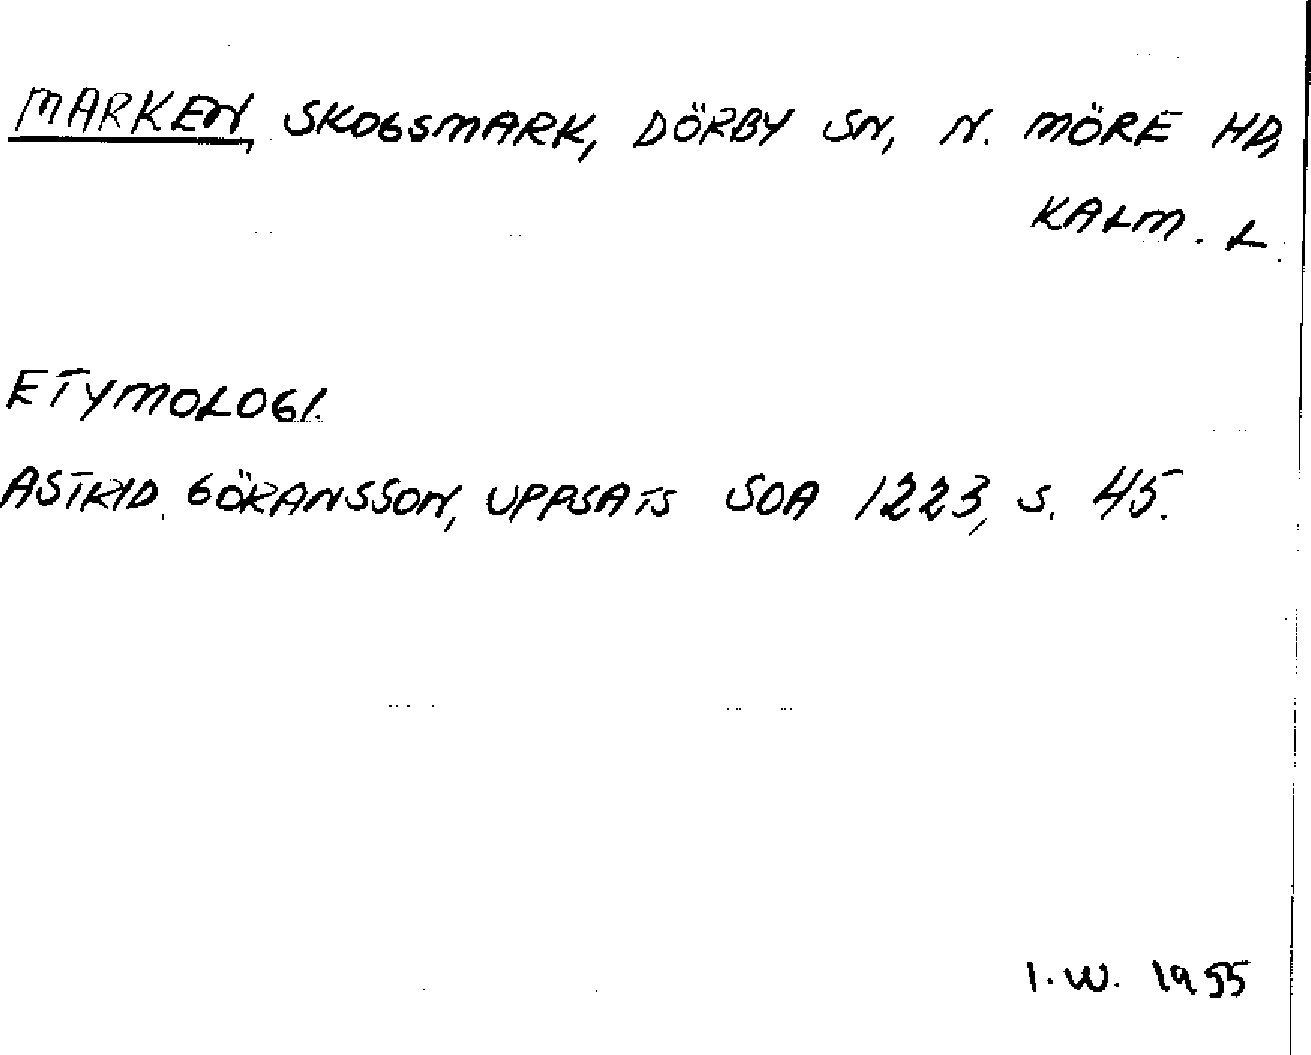 MARKEN, SKOGSMARK, DÖRBY SN, N. MÖRE HD,
KALM. L.
ETYMOLOGI.
ASTRID GÖRANSSON, UPPSATS SOA 1223, S. 45.
I.W. 1955